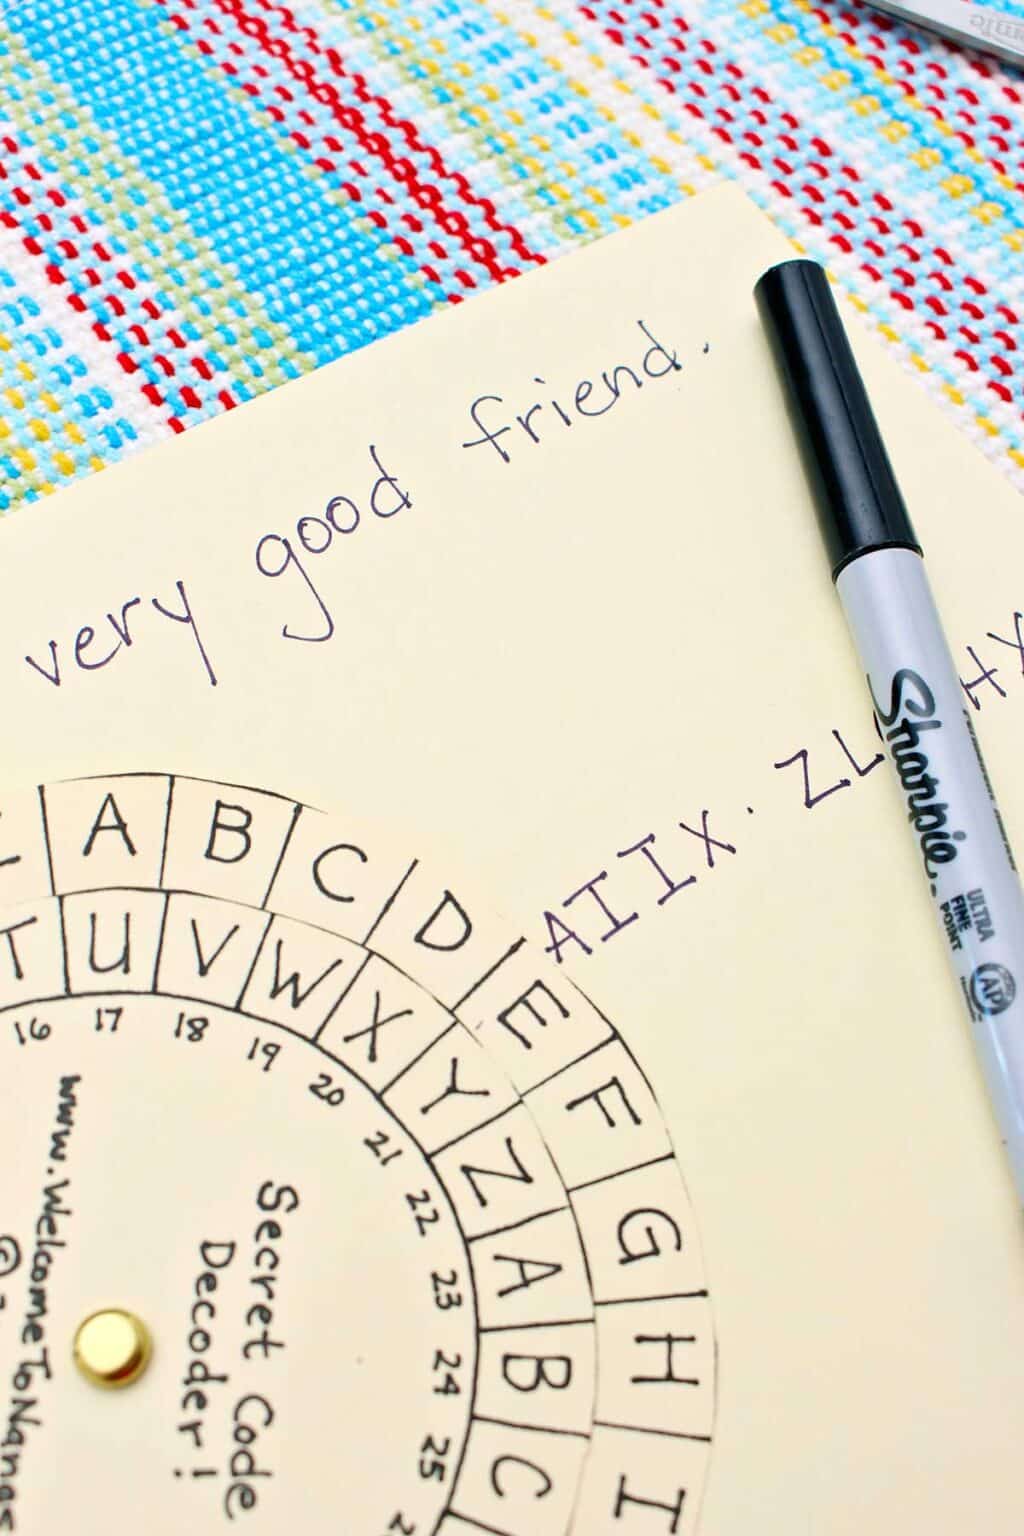 very good friend.
AIIX. ZL HX
Sharpie
ULTRA
FINE
POINT
AP
A B C D E F G H I
T U V W X Y Z A B C
16 17 18 19 20 21 22 23 24 25
Secret Code
Decoder!
www.WelcomeToNanas